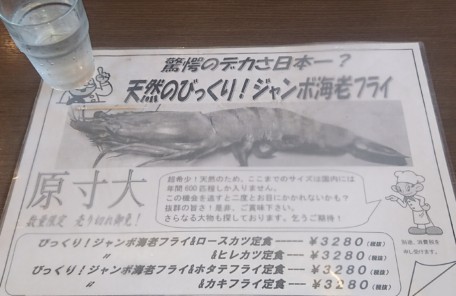 驚愕のデカさ日本一?
天然のびっくり!ジャンボ海老フライ
原寸大
数量限定 売り切れ御免!
超希少!天然のため、ここまでのサイズは国内には
年間600匹程しか入りません。
この機会を逃すと二度とお目にかかれないかも?
抜群の旨さ!是非、ご賞味下さい。
さらなる大物も探しております。乞うご期待!
びっくり!ジャンボ海老フライ&ロースカツ定食 ---- ¥3280(税抜)
〃 &ヒレカツ 定食 ---- ¥3280(税抜)
びっくり!ジャンボ海老フライ&ホタテフライ定食 --- ¥3280(税抜)
〃 &カキフライ定食 ---- ¥3280(税抜)
別途、消費税を
申し受けます。